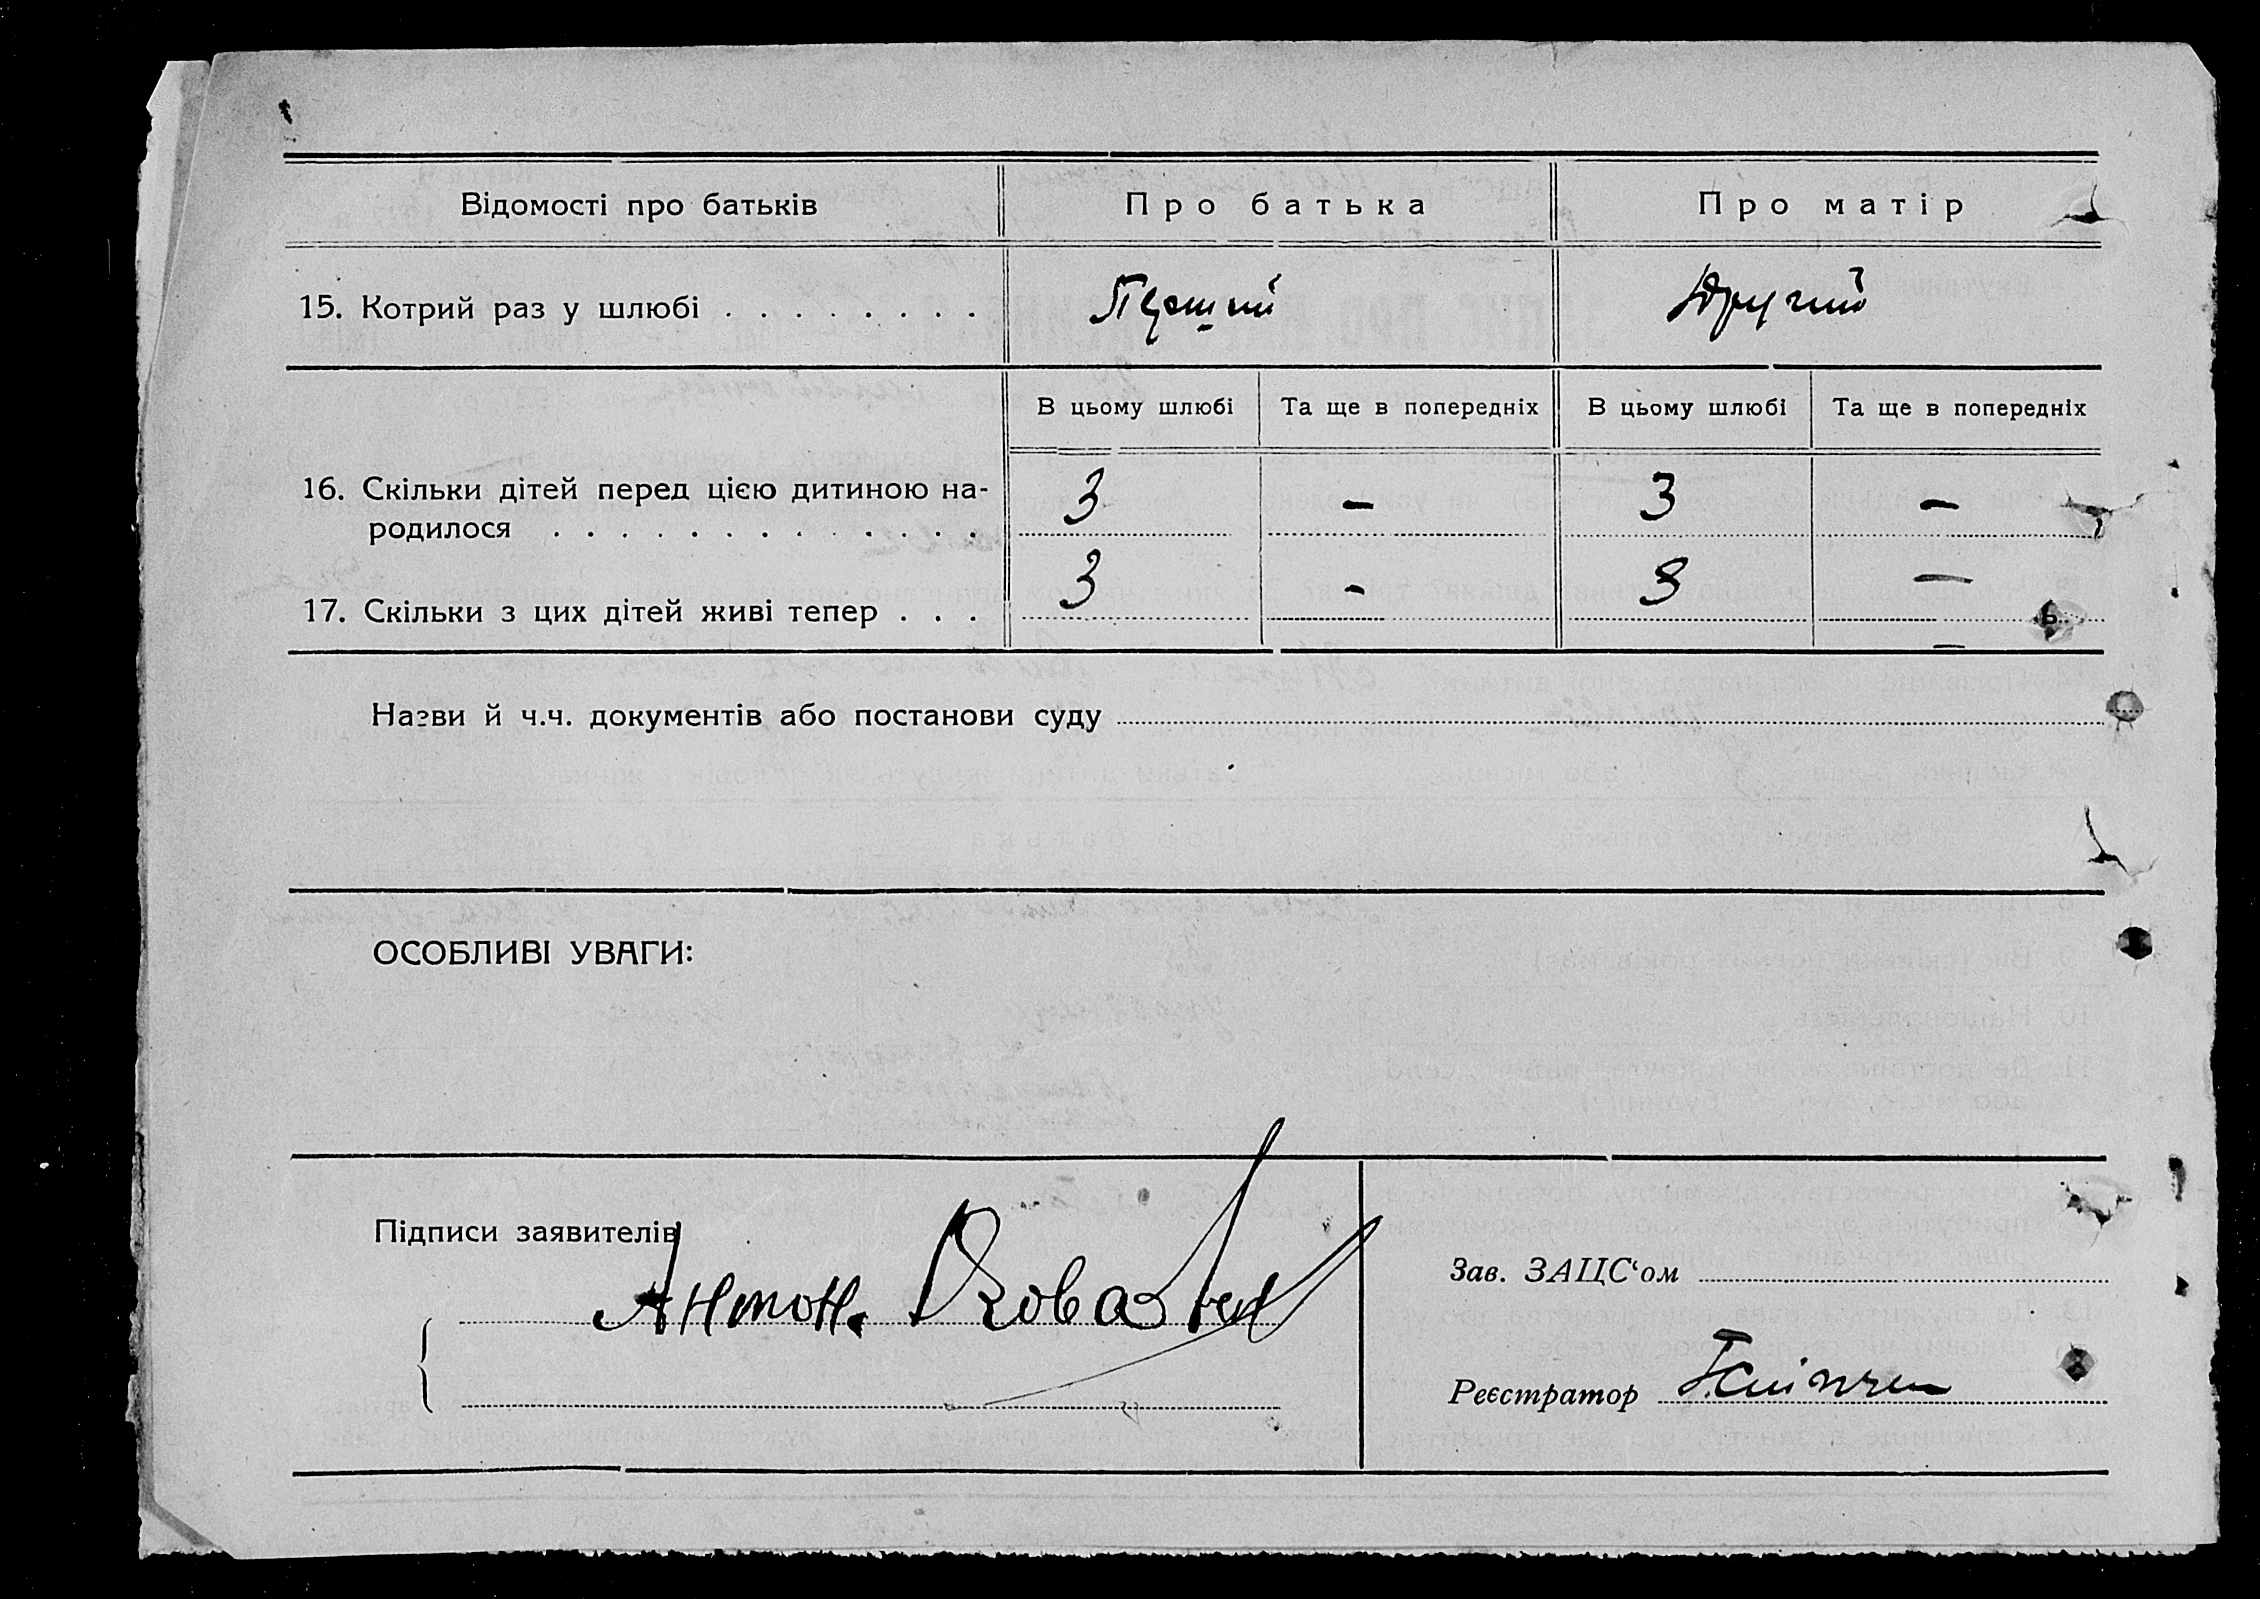 Відомості про батьків Про батька Про матір
15. Котрий раз у шлюбі . . . . . . . . Перший Другий
В цьому шлюбі Та ще в попередніх В цьому шлюбі Та ще в попередніх
16. Скільки дітей перед цією дитиною на-
родилося . . . . . . . . . . . . . 3 - 3 -
17. Скільки з цих дітей живі тепер . . . 3 - 3 -
Назви й ч.ч. документів або постанови суду
ОСОБЛИВІ УВАГИ:
Підписи заявителів
Антон.
Зав. ЗАЦС‘ом
Реєстратор